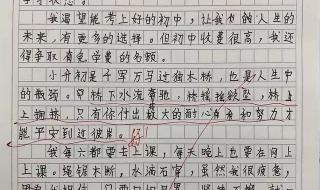 我渴望能考上好的初中，让我有触人生的
未来，有更多的选择。但初中收费很高，我还
得争取有免学费的名额。
小升初是千军万马过独木桥，也是人生中
的瓶颈。早桥下水流奔驰，桥摇摇欲坠，桥上
上拥挤，只有你付出极大的耐心和努力才
能平安到过彼岸。好！
我每六都要去上课，每天晚上也要在网上
上课。绳锯木断，水滴石穿，虽然我很疲惫，